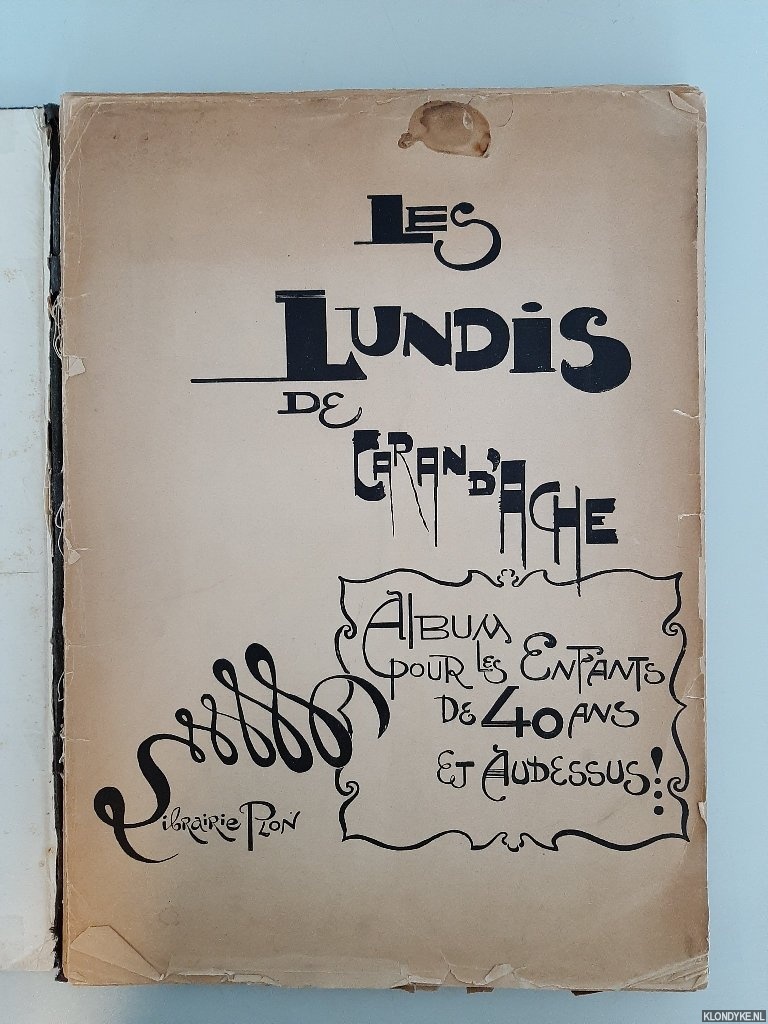 LES
LUNDIS
DE
CARAN D'ACHE
ALBUM
POUR LES ENFANTS
DE 40 ANS
ET AUDESSUS!
Librairie PLON
KLONDYKE.NL